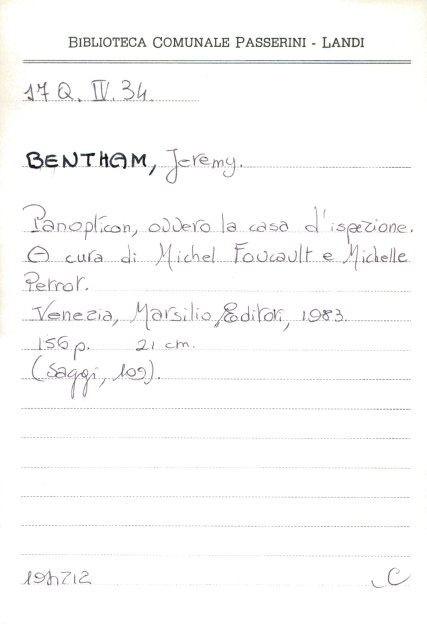 BIBLIOTECA COMUNALE PASSERINI - LANDI
17 Q. IV. 34.
BENTHAM, Jeremy.
Panopticon, ovvero la casa d'ispezione.
A cura di Michel Foucault e Michelle
Perrot.
Venezia, Marsilio Editori, 1983.
156 p. 21 cm.
(Saggi, 109).
C